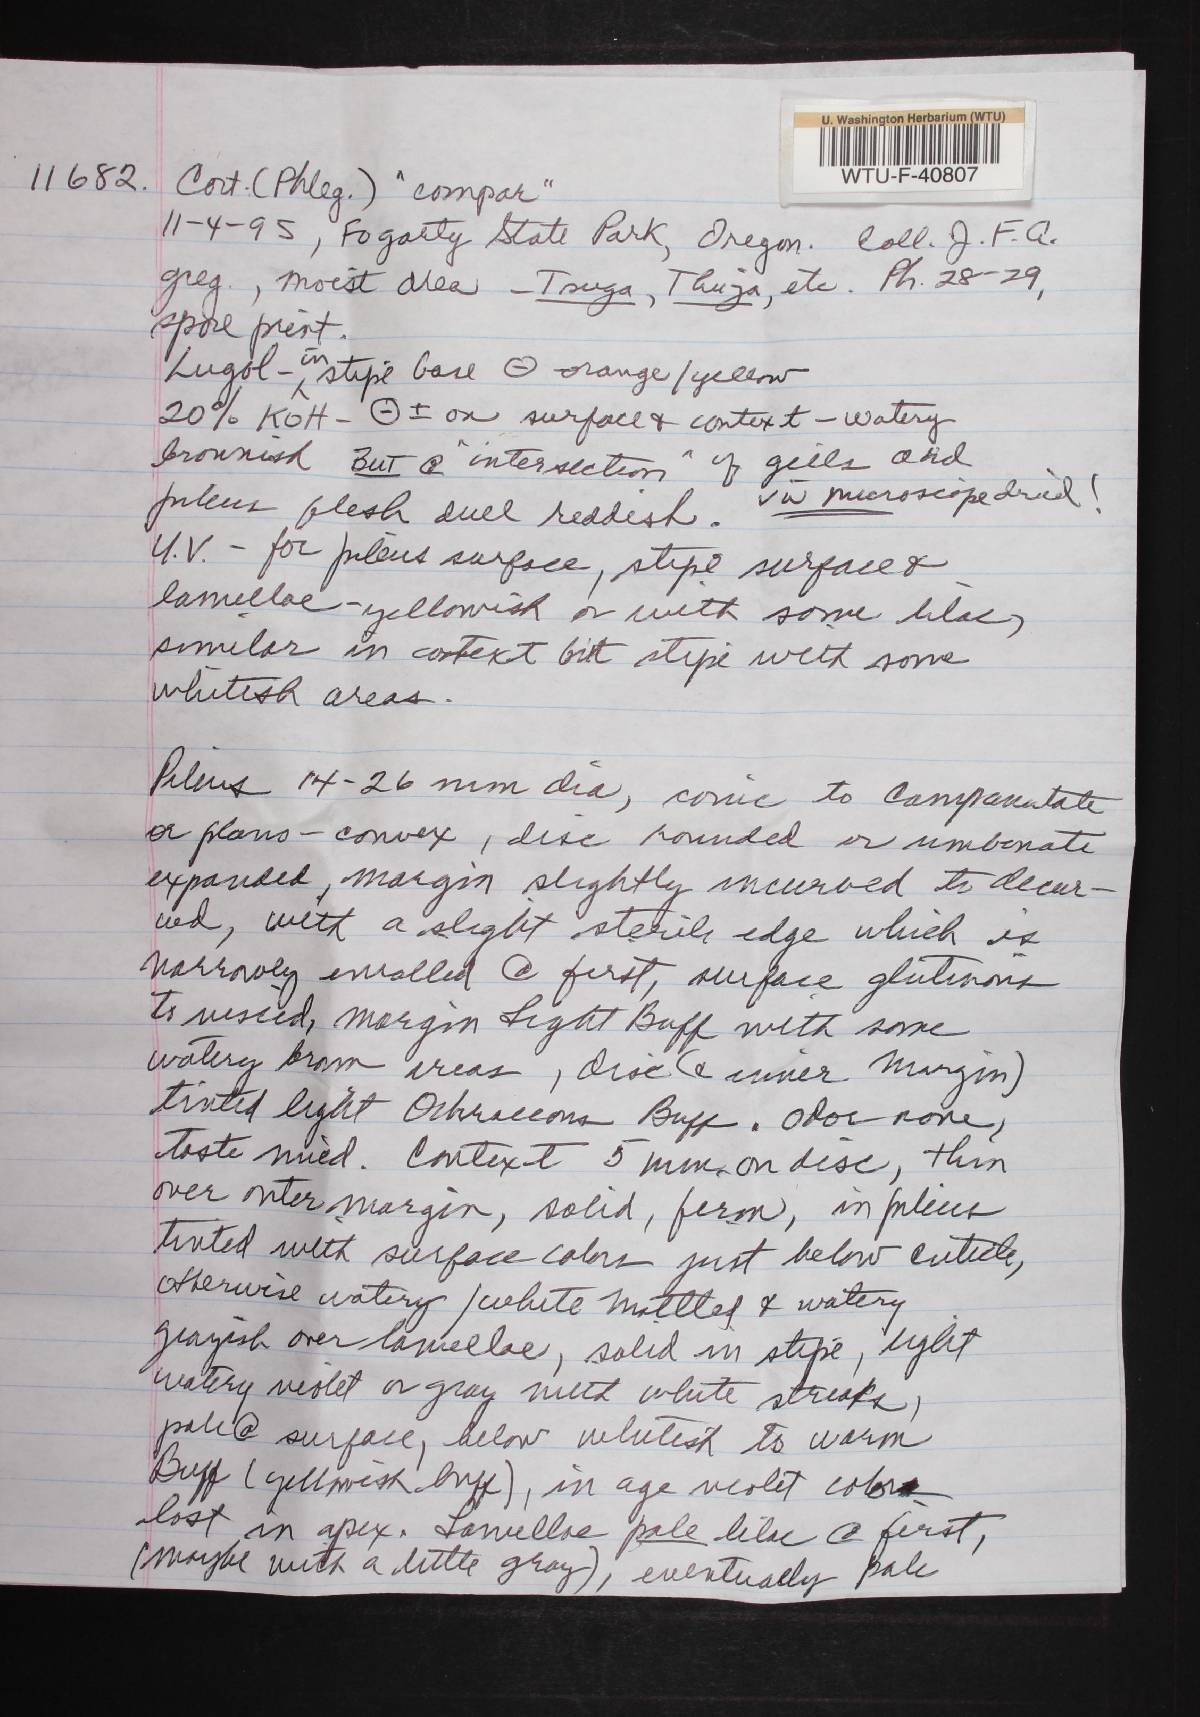 U. Washington Herbarium (WTU)
WTU-F-40807
11682. Cort. (Phleg.) "compar"
11-4-95, Fogarty State Park, Oregon. Coll. J.F.A.
greg., moist area - Tsuga, Thuja, etc. Ph. 28-29,
spore print.
Lugol - in stipe base ⊖ orange/yellow
20% KOH - ⊖ ± on surface & context - watery
brownish BUT @ "intersection" of gills and
pileus flesh dull reddish. microscope dried!
U.V. - for pileus surface, stipe surface &
lamellae - yellowish or with some lilac,
similar in context but stipe with some
whitish areas.
Pileus 14-26 mm dia, conic to campanulate
or plano-convex, disc rounded or umbonate
expanded, margin slightly incurved to decur-
ved, with a slight sterile edge which is
narrowly enrolled @ first, surface glutinous
to viscid, margin Light Buff with some
watery brown areas, disc (& inner margin)
tinted light Ochraceous Buff. Odor none,
taste mild. Context 5 mm. on disc, thin
over outer margin, solid, firm, in pileus
tinted with surface colors just below cuticle,
otherwise watery/white mottled & watery
grayish over lamellae, solid in stipe, light
watery violet or gray with white streaks,
pale @ surface, below whitish to warm
Buff (yellowish buff), in age violet colors
lost in apex. Lamellae pale lilac @ first,
(maybe with a little gray), eventually pale